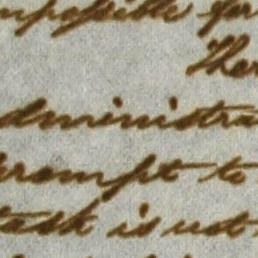 impossible for
Ther
dministra
prompt to
task is not